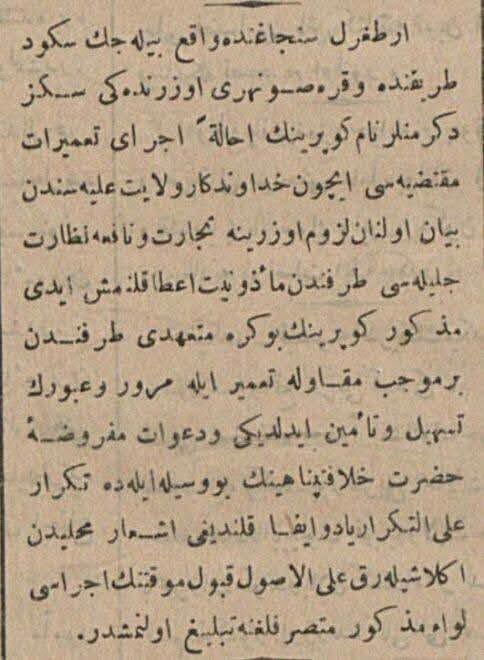 ارطغرل سنجاغنده واقع بیله جك سكود
طریقنده و قره صو نهری اوزرنده كی سكز
دكرمنلر نام كوپرینك احالةً اجرای تعمیرات
مقتضیه سی ایچون خداوندكار ولایت علیه سندن
بیان اولنان لزوم اوزرینه تجارت و نافعه نظارت
جلیله سی طرفندن مأذونیت اعطا قلنمش ایدی
مذكور كوپرینك بوكره متعهدی طرفندن
برموجب مقاوله تعمیر ایله مرور و عبورك
تسهیل و تأمین ایدلدیكی و دعوات مفروضۀ
حضرت خلافتپناهینك بو وسیله ایله ده تكرار
علی التكرار یاد و ایفا قلندیغی اشعار محلیدن
اكلاشیله رق علی الاصول قبول موقتنك اجراسی
لواء مذكور متصرفلغنه تبلیغ اولنمشدر.